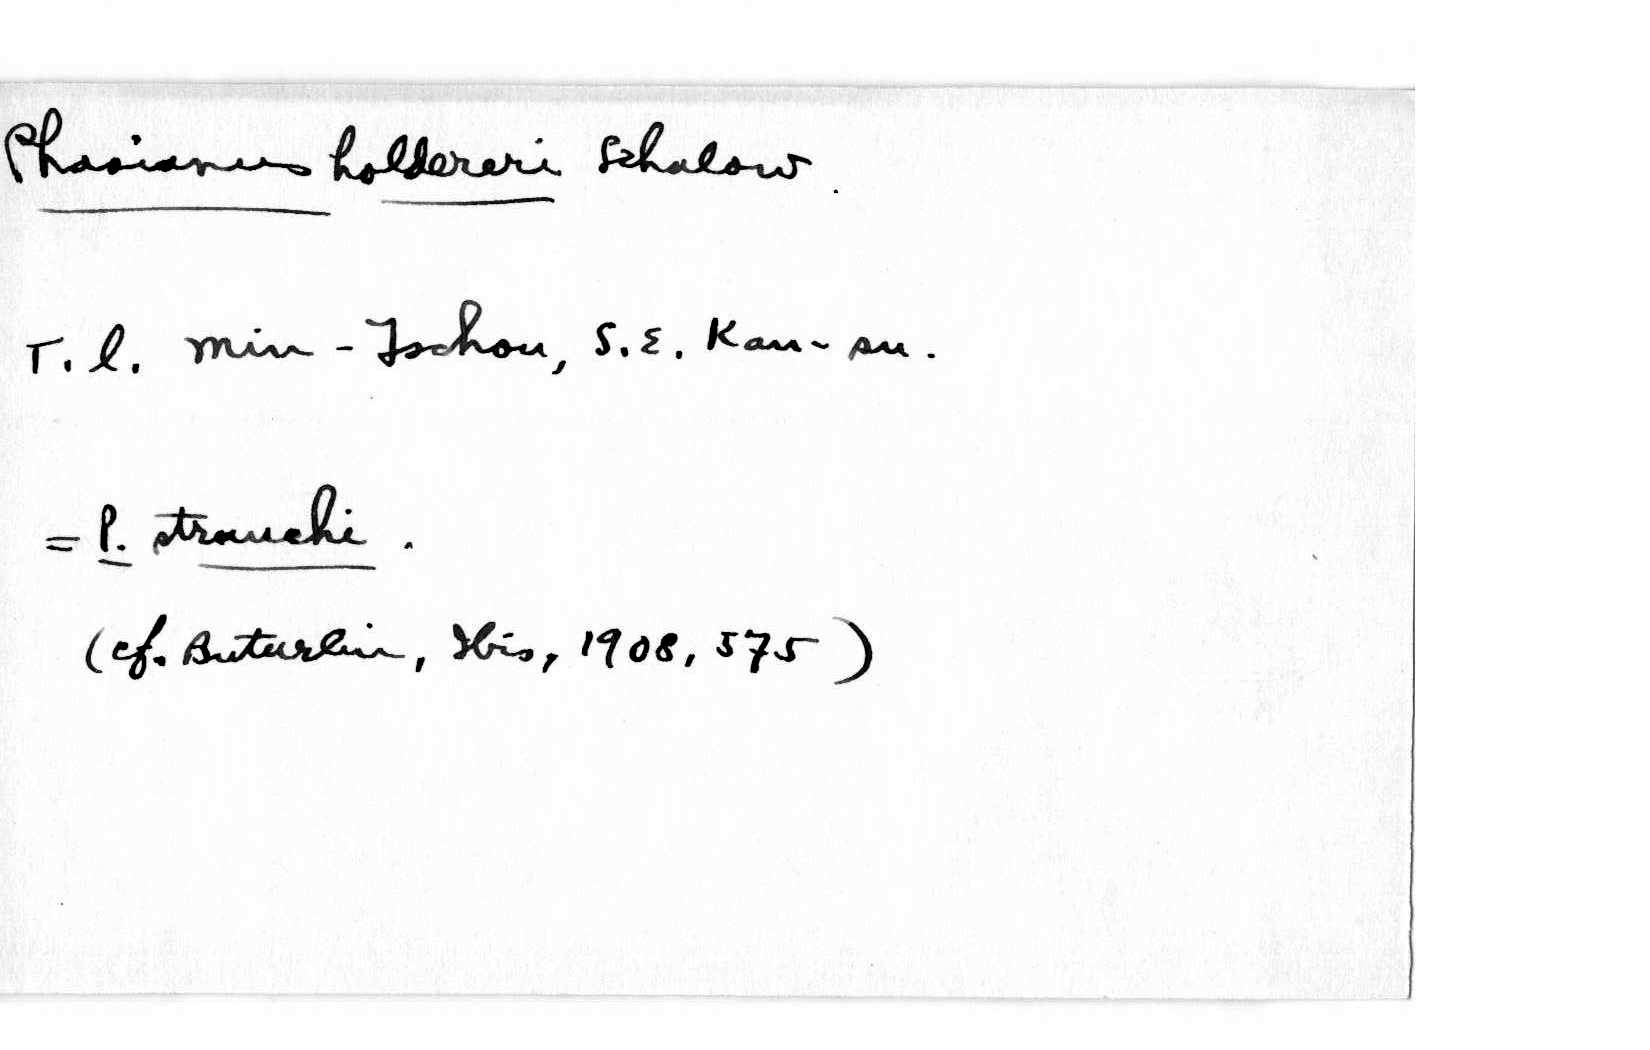 Phasianus holdereri Schalow.
T. l. Min-Tschou, S.E. Kan-su.
= P. strauchi.
(cf. Buturlin, Ibis, 1908, 575)